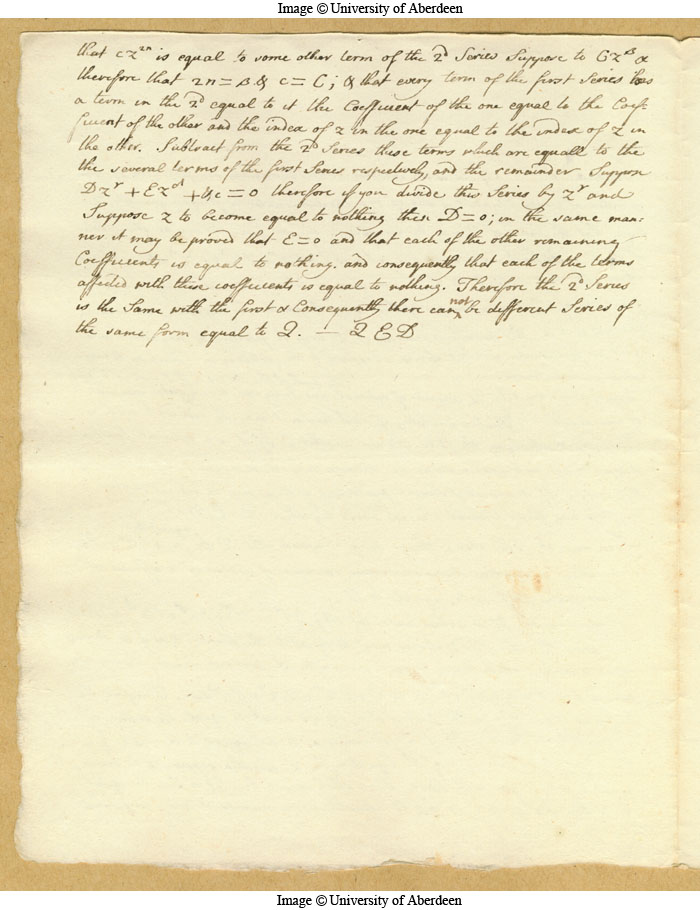 Image © University of Aberdeen
that cz²ⁿ is equal to some other term of the 2ᵈ Series Suppose to Czᵝ &
therefore that 2n = β & c = C; & that every term of the first Series has
a term in the 2ᵈ equal to it the Coefficient of the one equal to the Coef-
ficient of the other and the index of z in the one equal to the index of z in
the other. Subtract from the 2ᵈ Series these terms which are equall to the
the several terms of the first Series respectively, and the remainder Suppose
Dzʳ + Ez + &c = 0 therefore if you divide this Series by zʳ and
Suppose z to become equal to nothing then D = 0; in the same man:
ner it may be proved that E = 0 and that each of the other remaining
Coefficients is equal to nothing. and consequently that each of the terms
affected with these coefficients is equal to nothing. Therefore the 2ᵈ Series
is the Same with the first & Consequently there cannot be different Series of
the same form equal to Q. — Q E D
Image © University of Aberdeen